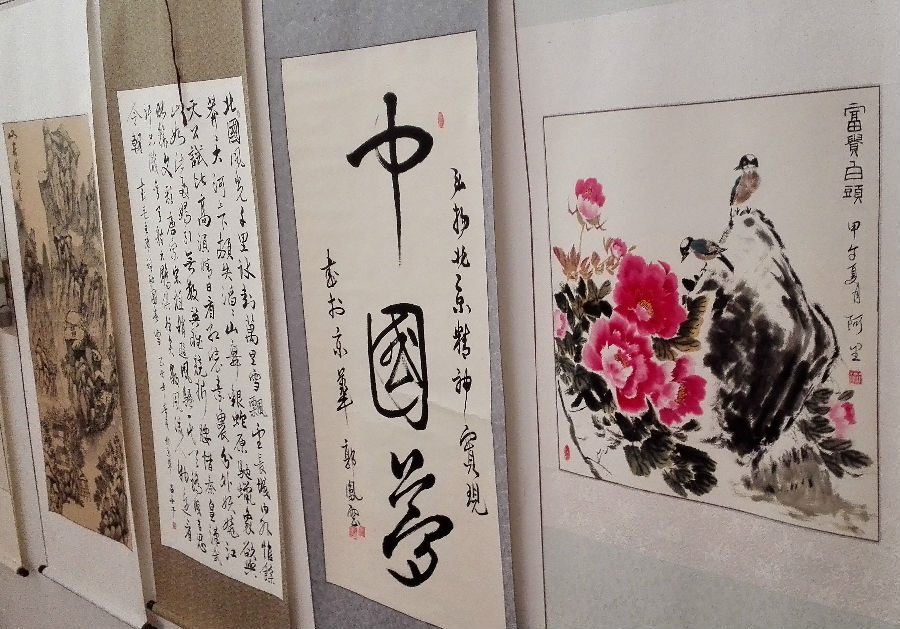 富貴白頭
甲午夏月 阿里
弘揚北京精神實現
中國夢
書於京華 郭鳳
北國風光千里冰封萬里雪飄望長城内外惟餘
莽莽大河上下頓失滔滔山舞銀蛇原馳蠟象欲與
天公試比高須晴日看紅裝素裹分外妖嬈江
山如此多嬌引無數英雄競折腰惜秦皇漢武
略輸文采唐宗宋祖稍遜風騷一代天驕成吉思
汗只識彎弓射大雕俱往矣數風流人物還看
今朝